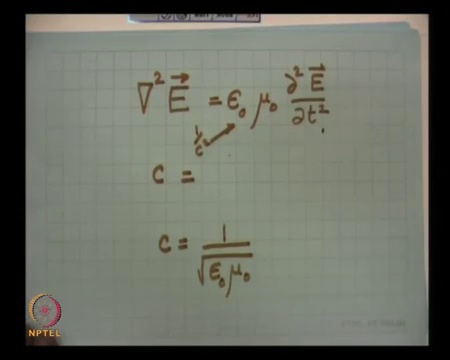 ∇² E⃗ = ε₀ μ₀ ∂²E⃗/∂t²
1/c²
c =
c = 1/√(ε₀ μ₀)
NPTEL